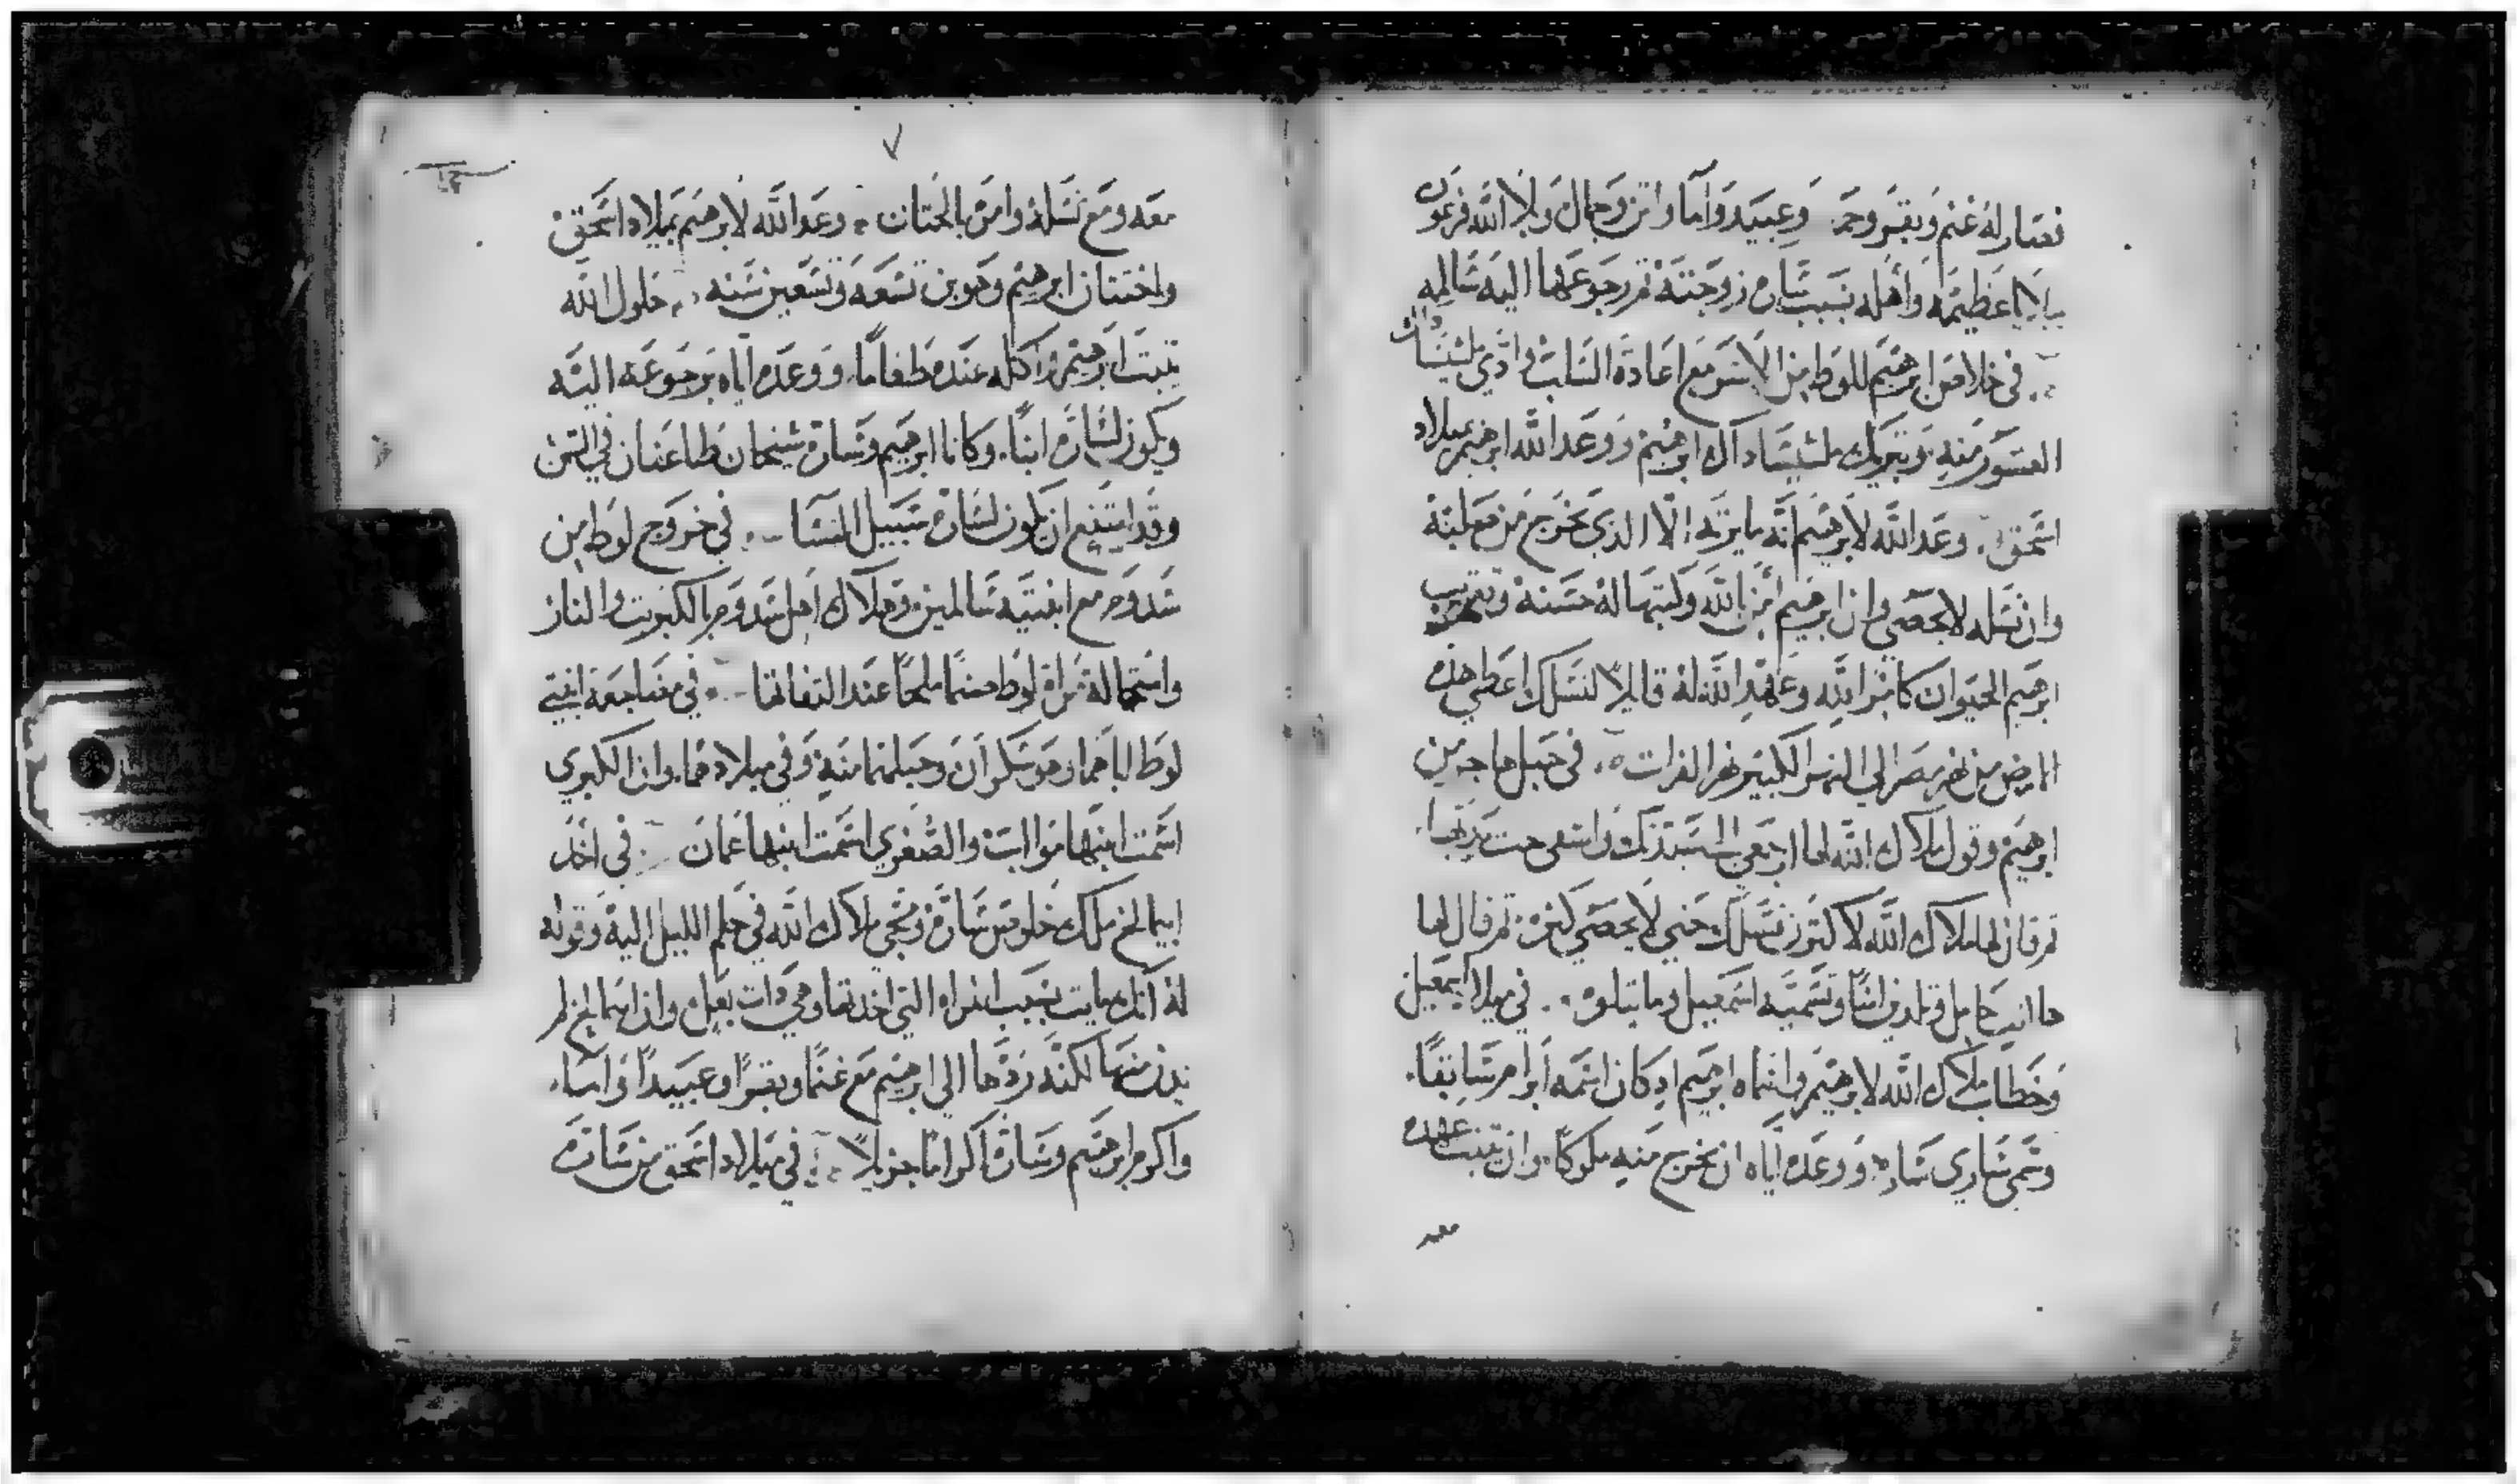 فصار له غنم وبقر وحمر وعبيد وآما واتن وجمال وبلا الله فرعون
بلايا عظيمه واهله بسبب ساره زوجته ثم رجوعها اليه سالمه
في خلاص ابرهيم للوط من الاسر مع اعادة السلب وادي ملشيساداك
العشور منه وتبريك ملشيساداك ابرهيم ووعد الله ابرهيم بميلاد
اسحق وعد الله لابرهيم انه ما يرثه الا الذي يخرج من صلبه
وان نسله لا يحصى وان ابرهيم امن بالله وكتبها له حسنه وتقريب
ابرهيم الحيوان كامر الله وعهد الله له قايلا لنسلك اعطي هذه
الارض من نهر مصر الي النهر الكبير نهر الفرات في حبل هاجر من
ابرهيم وقول ملاك الله لها ارجعي الي سيدتك
ثم قال لها ملاك الله لاكثرن نسلك حتي لا يحصي كثره ثم قال لها
ها انت حامل وتلدين ابنا وتسميه اسمعيل وما يتلوه في ميلاد اسمعيل
وخطاب ملاك الله لابرهيم واسماه ابرهيم اد كان اسمه ابرام سابقا
وسمي ساري ساره ووعده اياه ان يخرج منه ملوكا وان يثبت عهده
معه
٧
معه ومع نسله وامره بالختان وعد الله لابرهيم بميلاد اسحق
واختتان ابرهيم وهو بن تسعه وتسعين سنه حلول الله
ببيت ابرهيم واكله عنده طعاما ووعده اياه برجوعه اليه
ويكون لساره ابنا وكانا ابرهيم وساره شيخان طاعنان في السن
وقد امتنع ان يكون لساره سبيل النسا في خروج لوط من
سدوم مع ابنتيه سالمين وهلاك اهل سدوم بالكبريت والنار
واستحالة مراة لوط صنما ملحا عند التفاتها في مضاجعة ابنتي
لوط اباهما وهو سكران وحبلهما منه وفي ميلادهما وان الكبري
اسمت ابنها مواب والصغري اسمت ابنها عمان في اخذ
ابيمالخ ملك خلوص ساره ومجي ملاك الله في حلم الليل اليه وقوله
له انك مايت بسبب المراه التي اخدتها وهي دات بعل وان ابيمالخ لم
يدن منها لكنه ردها الي ابرهيم مع غنما وبقرا وعبيدا واما
واكرم ابرهيم وساره اكراما جزيلا في ميلاد اسحق من ساره